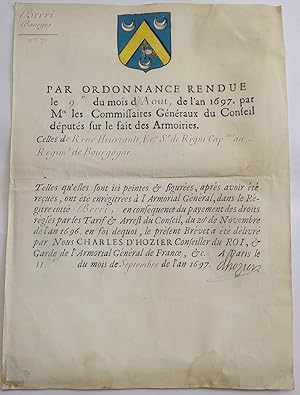 Berri
Bourges
PAR ORDONNANCE RENDUE
le 9e du mois d'Aout, de l'an 1697. par
Mrs les Commissaires Généraux du Conseil
députés sur le fait des Armoiries.
Celles de René Heurtault Ecr Sr de
Regimt de Bourgogne
Telles qu'elles sont ici peintes & figurées, aprés avoir été
reçues, ont été enregîtrées à l'Armorial Général, dans le Re-
gître cotté Berri, en conséquence du payement des droits
reglés par les Tarif & Arrest du Conseil, du 20e de Novembre
de l'an 1696. en foi dequoi, le présent Brévet a été délivré
par Nous CHARLES D'HOZIER Conseiller du ROI, &
Garde de l'Armorial Général de France, &c. A Paris le
11. du mois de Septembre de l'an 1697. d'hozier